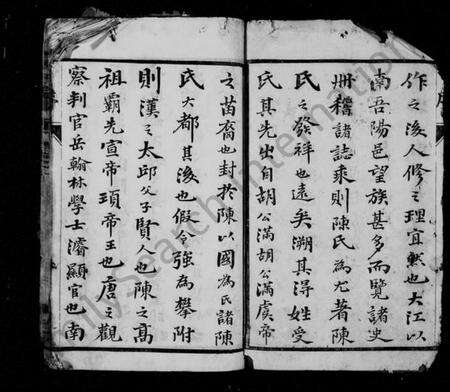 作之後人修之理宜然也大江以
南吾陽邑望族甚多而覽諸史
冊稽諸誌乘則陳氏為尤著陳
氏之發祥也遠矣溯其得姓受
氏其先出自胡公滿胡公滿虞帝
之苗裔也封於陳以國為氏諸陳
氏大都其後也假令強為攀附
則漢之太邱父子賢人也陳之高
祖霸先宣帝頊帝王也唐之觀
察判官岳翰林學士濬顯官也南
序